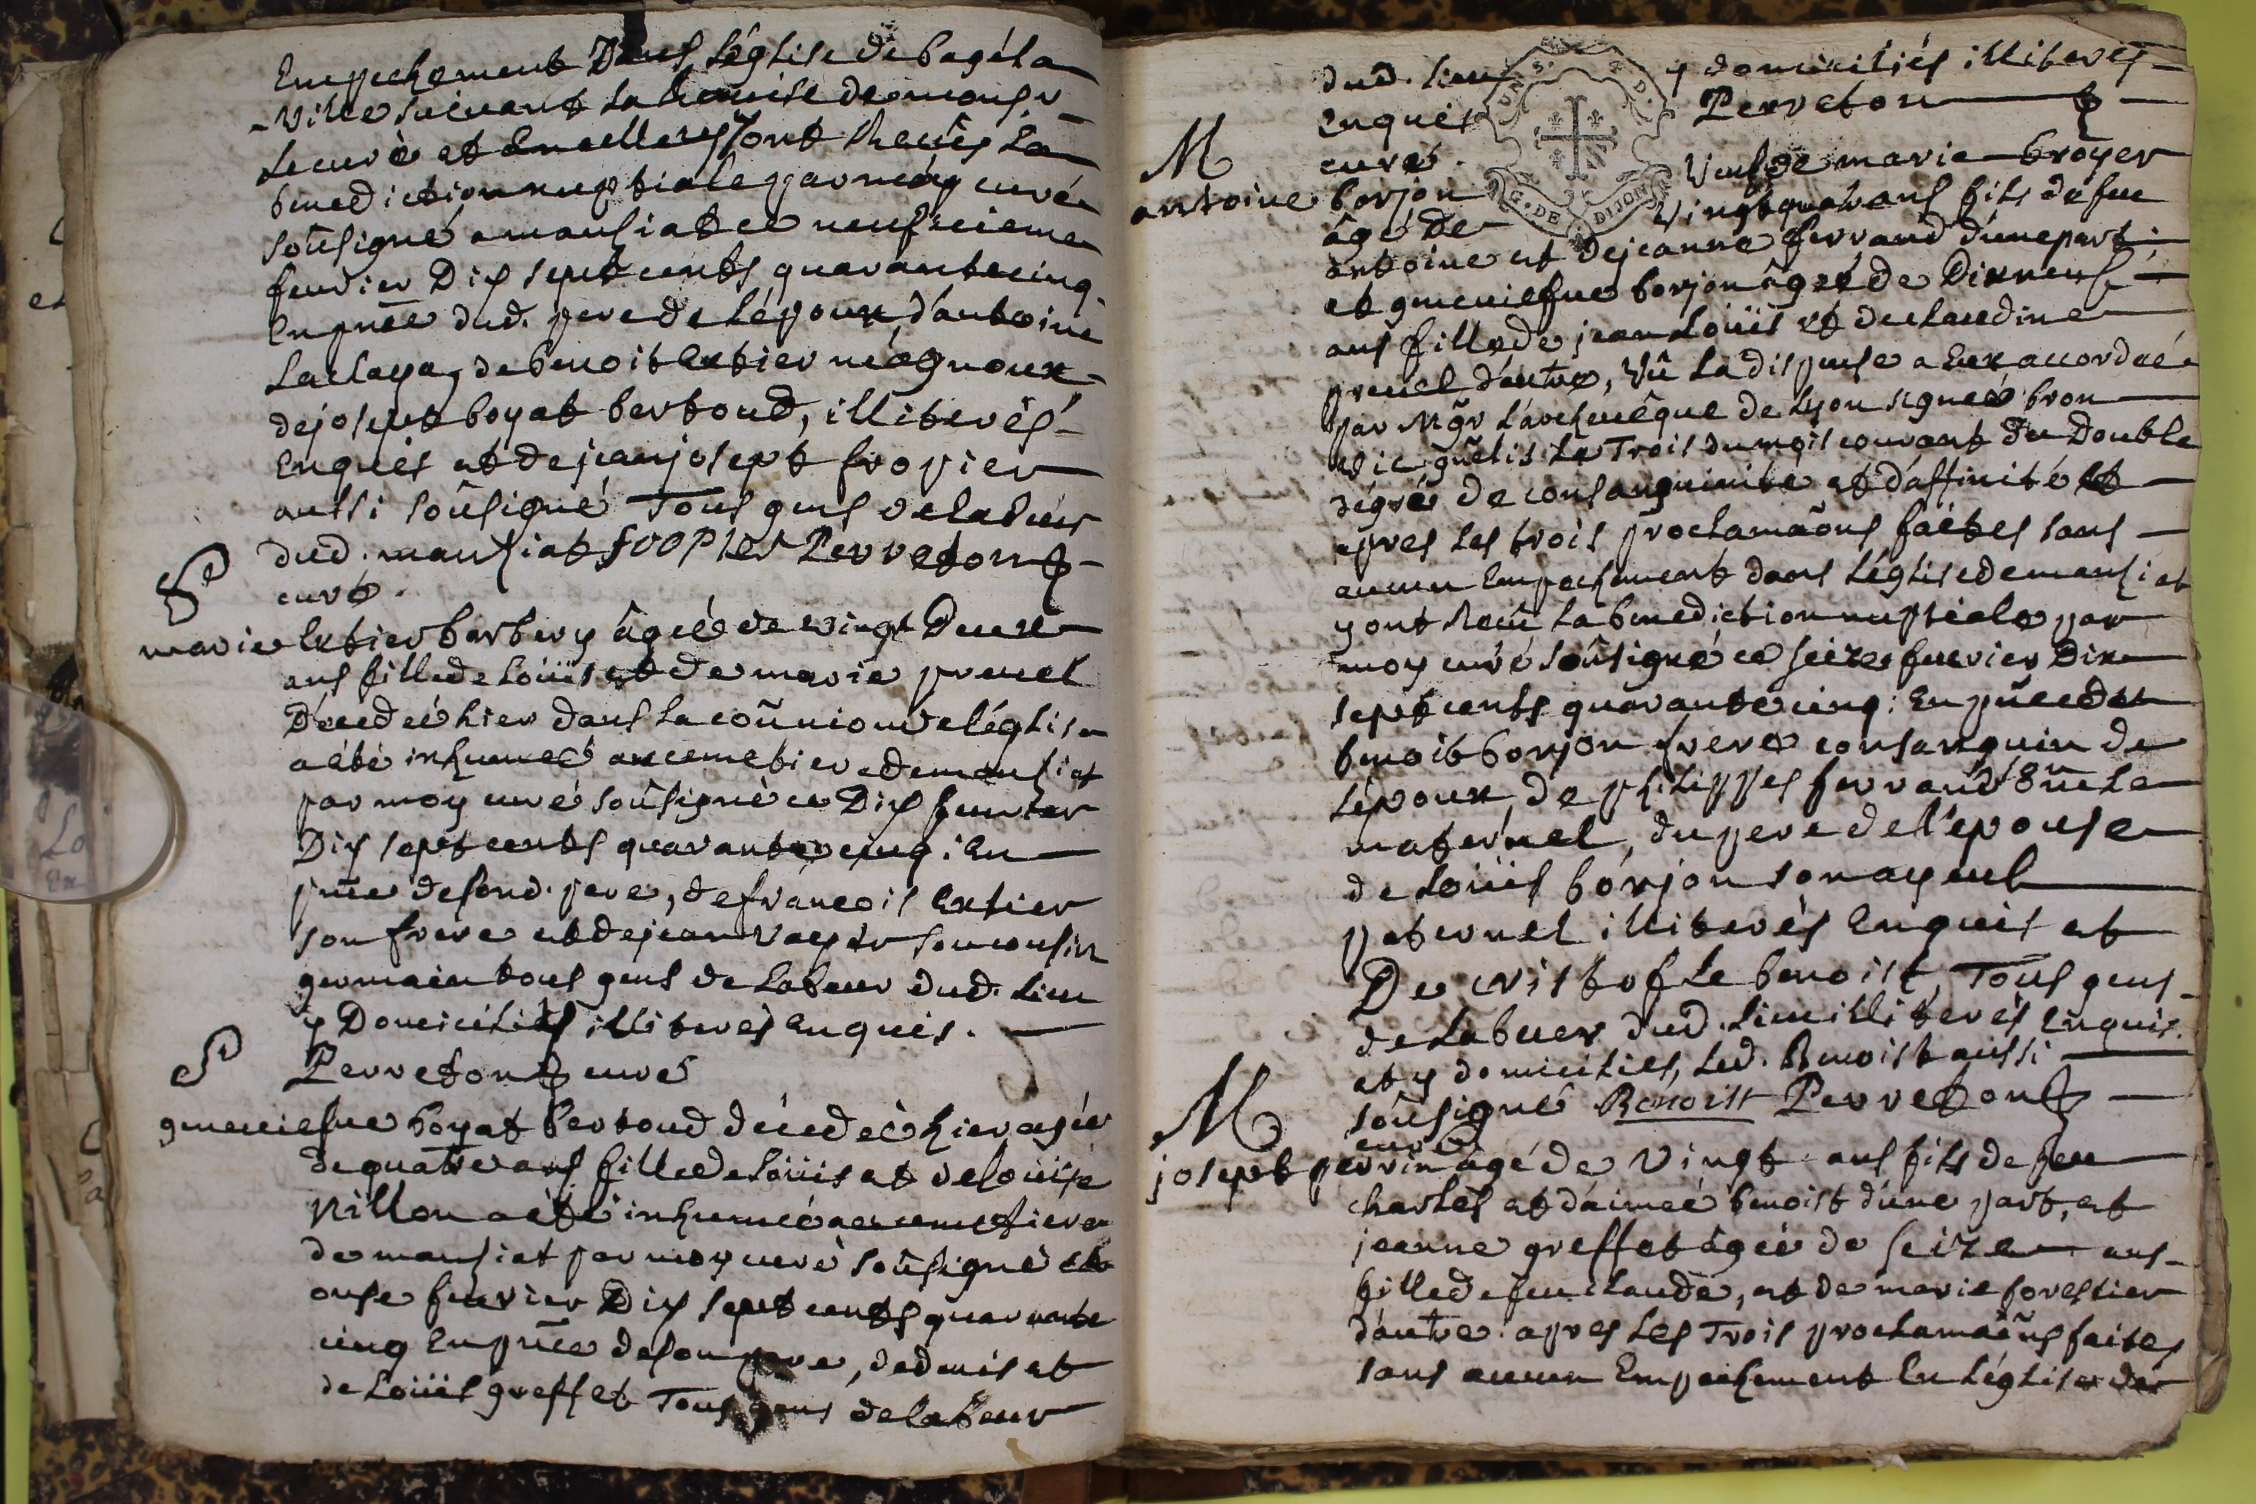 Empechement Dans L'église de bagé la
Ville suivant la Remise de monsr
le curé et Encellery, ont Receûs La
benediction nuptiale par moy curé
soûsigné a mansiat ce neufvieme
feuvrier Dix sept cents quarante cinq.
En pñce dud. pere de L'époux d'antoine
Laclaya, de benoit Extier négnoux
de josept boyat bertoud, illiterés
Enquis et de jean josept fropier
aussi soûsigné Tous gens de labeur
dud. mansiat fropier Perreton
curé.
S
marie Extier barbery âgée de vingt Deux
ans fille de Loüis et de marie pruel
Décedeé hier dans la coñunion de l'église
a été inhumeé au cemetiere de mansiat
par moy curé soûsigné ce Dix feuvrier
Dix sept cents quarante cinq; En
pñce de sond. pere, de francois Extier
son frere et de jean Vayer son cousin
germain tous gens de Labeur dud. Lieu
y Domiciliés illiterés Enquis.
Perreton curé
S
geneviefve boyat bertoud décedeé hier agée
de quatre ans fille de Loüis et de loüise
Nillon a été inhumeé au cemetiere
de mansiat par moy curé soûsigné ce
onse feuvrier Dix sept cents quarante
cinq En pñce de son pere, de denis et
de Loüis greffet Tous gens de labeur
dud. Lieu y domiciliés illiterés
Enquis Perreton
curé.
M
antoine borjon Veuf de marie broyer
âgé de Vingt quatre ans fils de feu
antoine et de jeanne ferrand d'une part;
et geneviefve borjon âgée de Dix neuf
ans fille de jean Loüis et de claudine
pruel d'autre, Vû La dispense a Eux accordeé
par Mgr L'archevêque de Lyon signeé bron
vic. gñel is Le Trois du mois courant du Double
dégré de consanguinite et d'affinité et
apres les trois proclamaõns faites sans
aucun Empechement dans L'église de mansiat
y ont Receû La benediction nuptiale par
moy curé soûsigné ce seize feuvrier Dix
sept cents quarante cinq: En pñce de
benoit borjon frere consanguin de
L'époux, de philippes ferrand oñcle
maternel, du pere de l'épouse
de Loüis borjon son ayeul
paternel illiterés Enquis et
De cristofle benoist, Tous gens
de Labeur dud. Lieu illiterés Enquis
et y domiciliés, Led. Benoist aussi
soûsigné Benoist Perreton
curé
M
josept perrin âgé de Vingt ans fils de feu
charles et d'aimeé benoist d'une part, et
jeanne greffet âgée de seize ans
fille de feu claude, et de marie forestier
d'autre. apres Les Trois proclamaõns faites
sans aucun Empechement En L'église de
G. DE DIJON